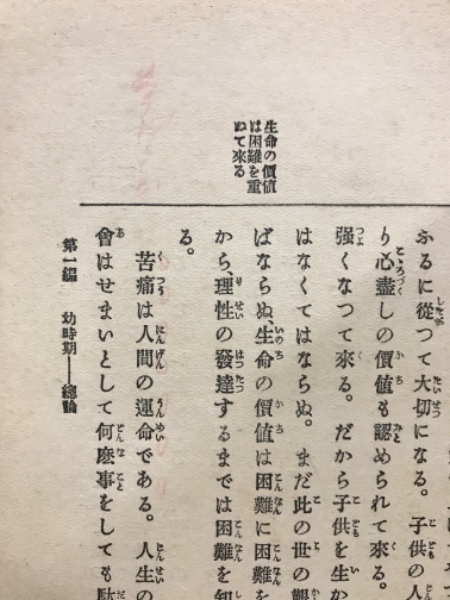 生命の價値
は困難を重
ねて來る
ふるに從つて大切になる。子供の人
り心盡しの價値も認められて來る。
强くなつて來る。だから子供を生か
はなくてはならぬ。まだ此の世の艱
ばならぬ、生命の價値は困難に困難を
から、理性の發達するまでは困難を知
る。
苦痛は人間の運命である。人生の
會はせまいとして何麽事をしても駄
第一編 幼時期——總論